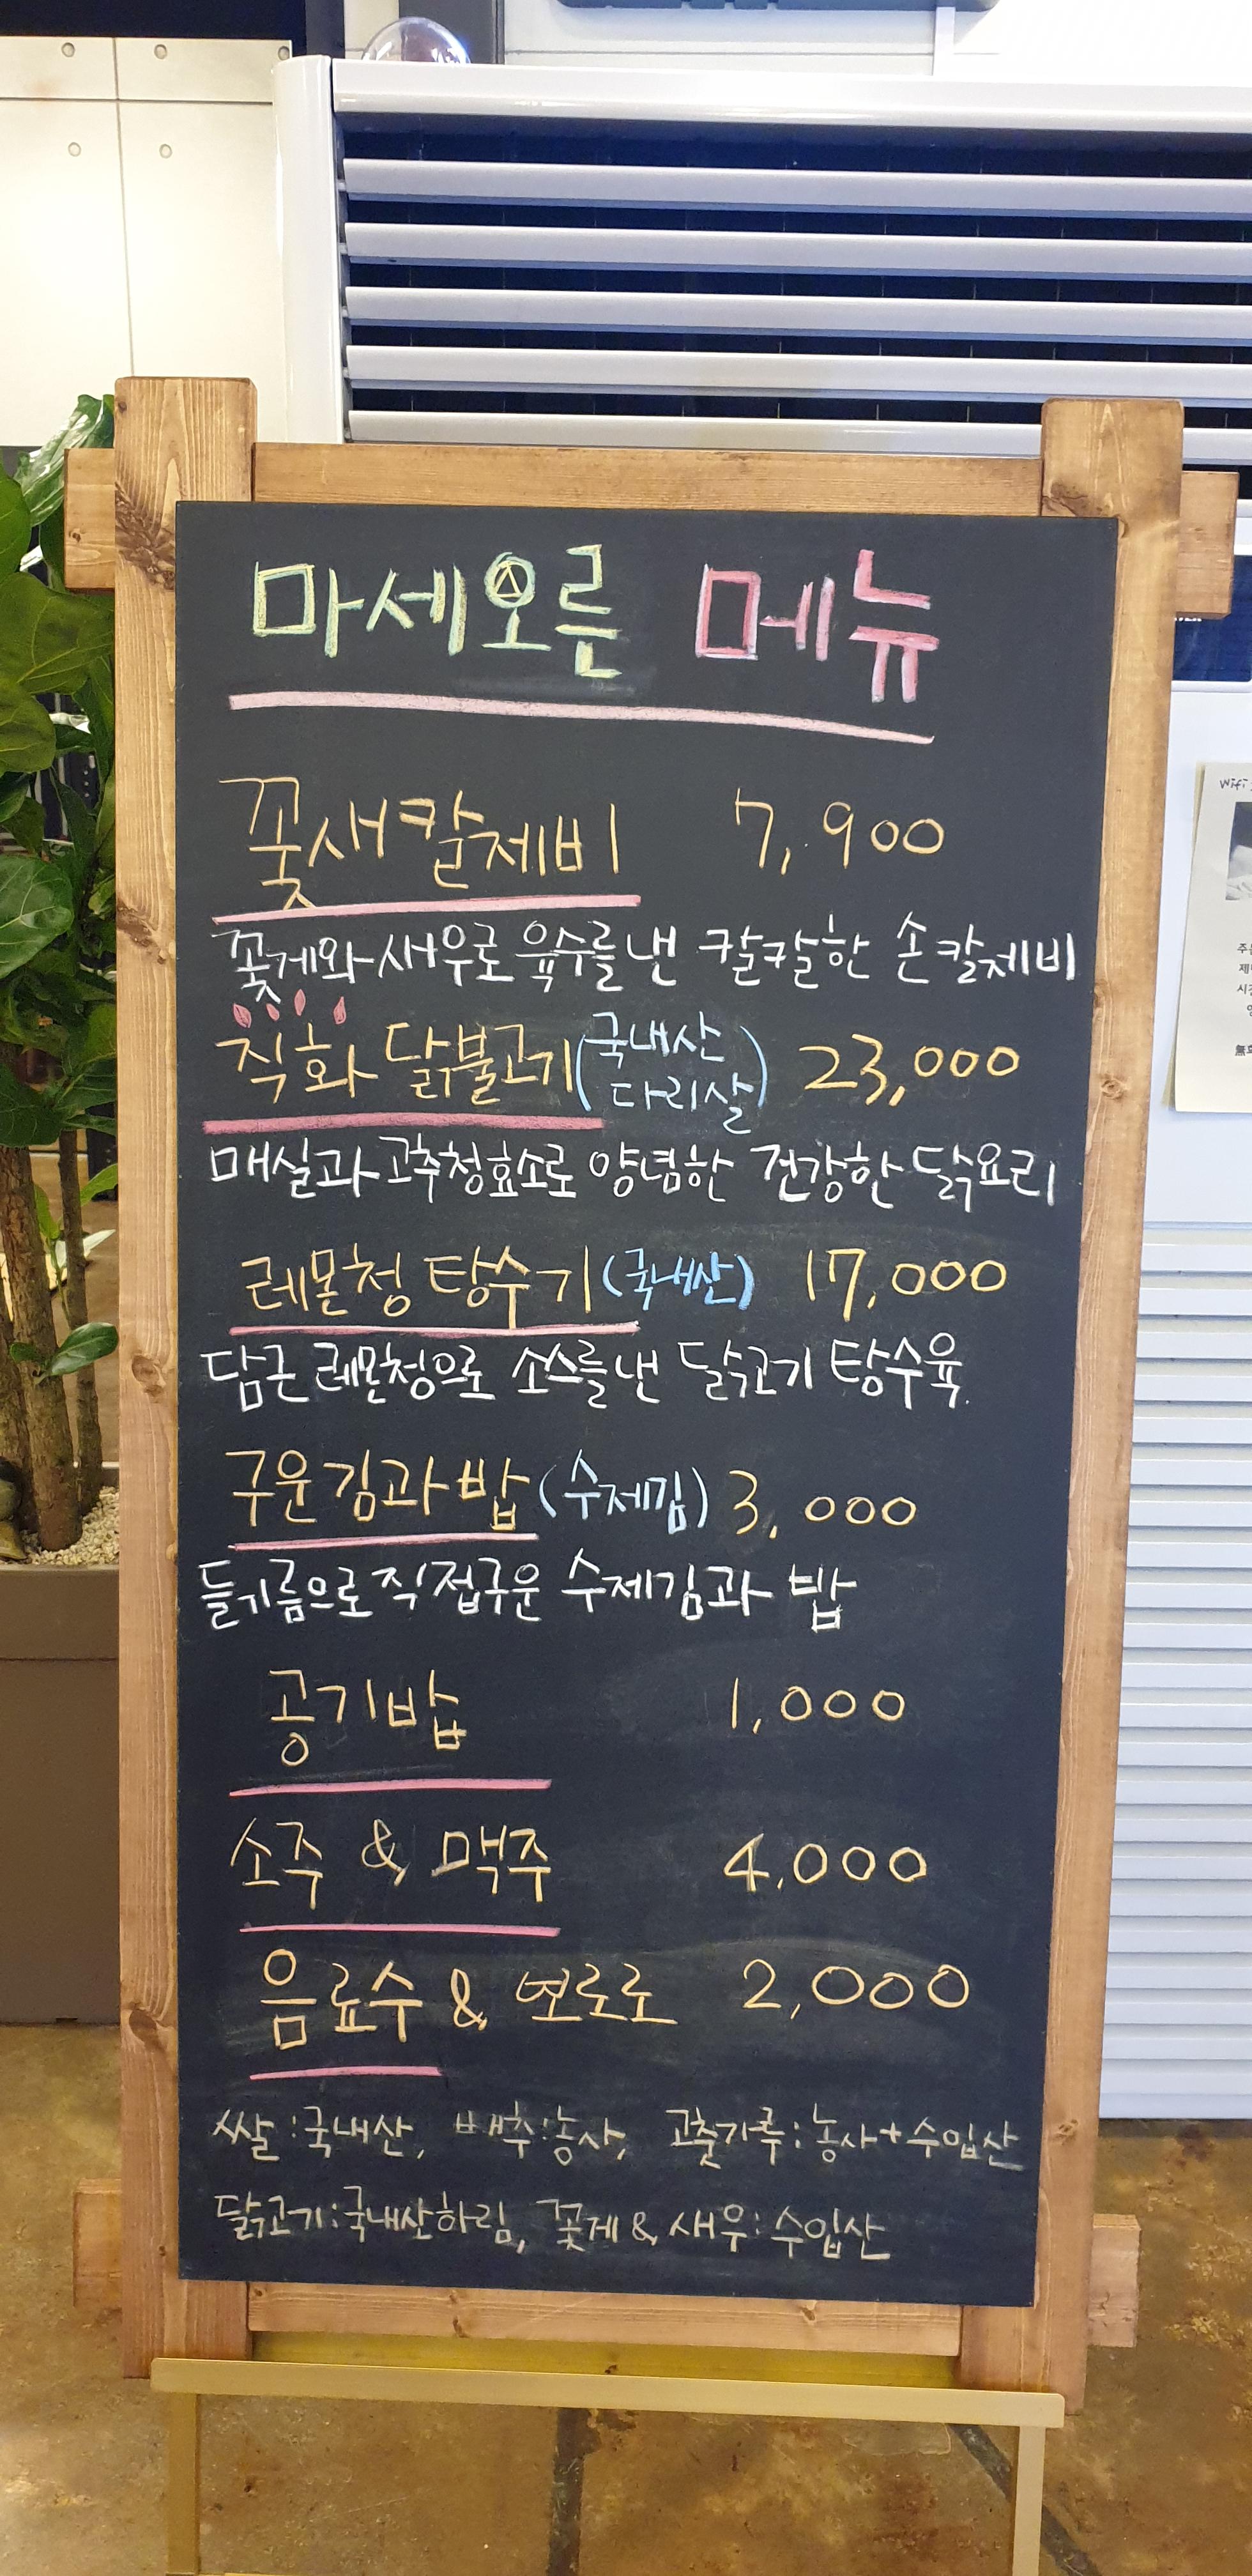 마세오른 메뉴
꽃새칼제비 7,900
꽃게와새우로 육수를낸 칼칼한 손칼제비
직화 닭불고기(국내산 다리살) 23,000
매실과고추청효소로 양념한 건강한 닭요리
레몬청 탕수기(국내산) 17,000
담근레몬청으로 소스를낸 닭고기 탕수육.
구운김과밥(수제김) 3,000
들기름으로직접구운 수제김과 밥
공기밥 1,000
소주 & 맥주 4,000
음료수 & 뽀로로 2,000
쌀:국내산, 배추:농사, 고춧가루:농사+수입산
닭고기:국내산하림, 꽃게&새우:수입산
Wifi